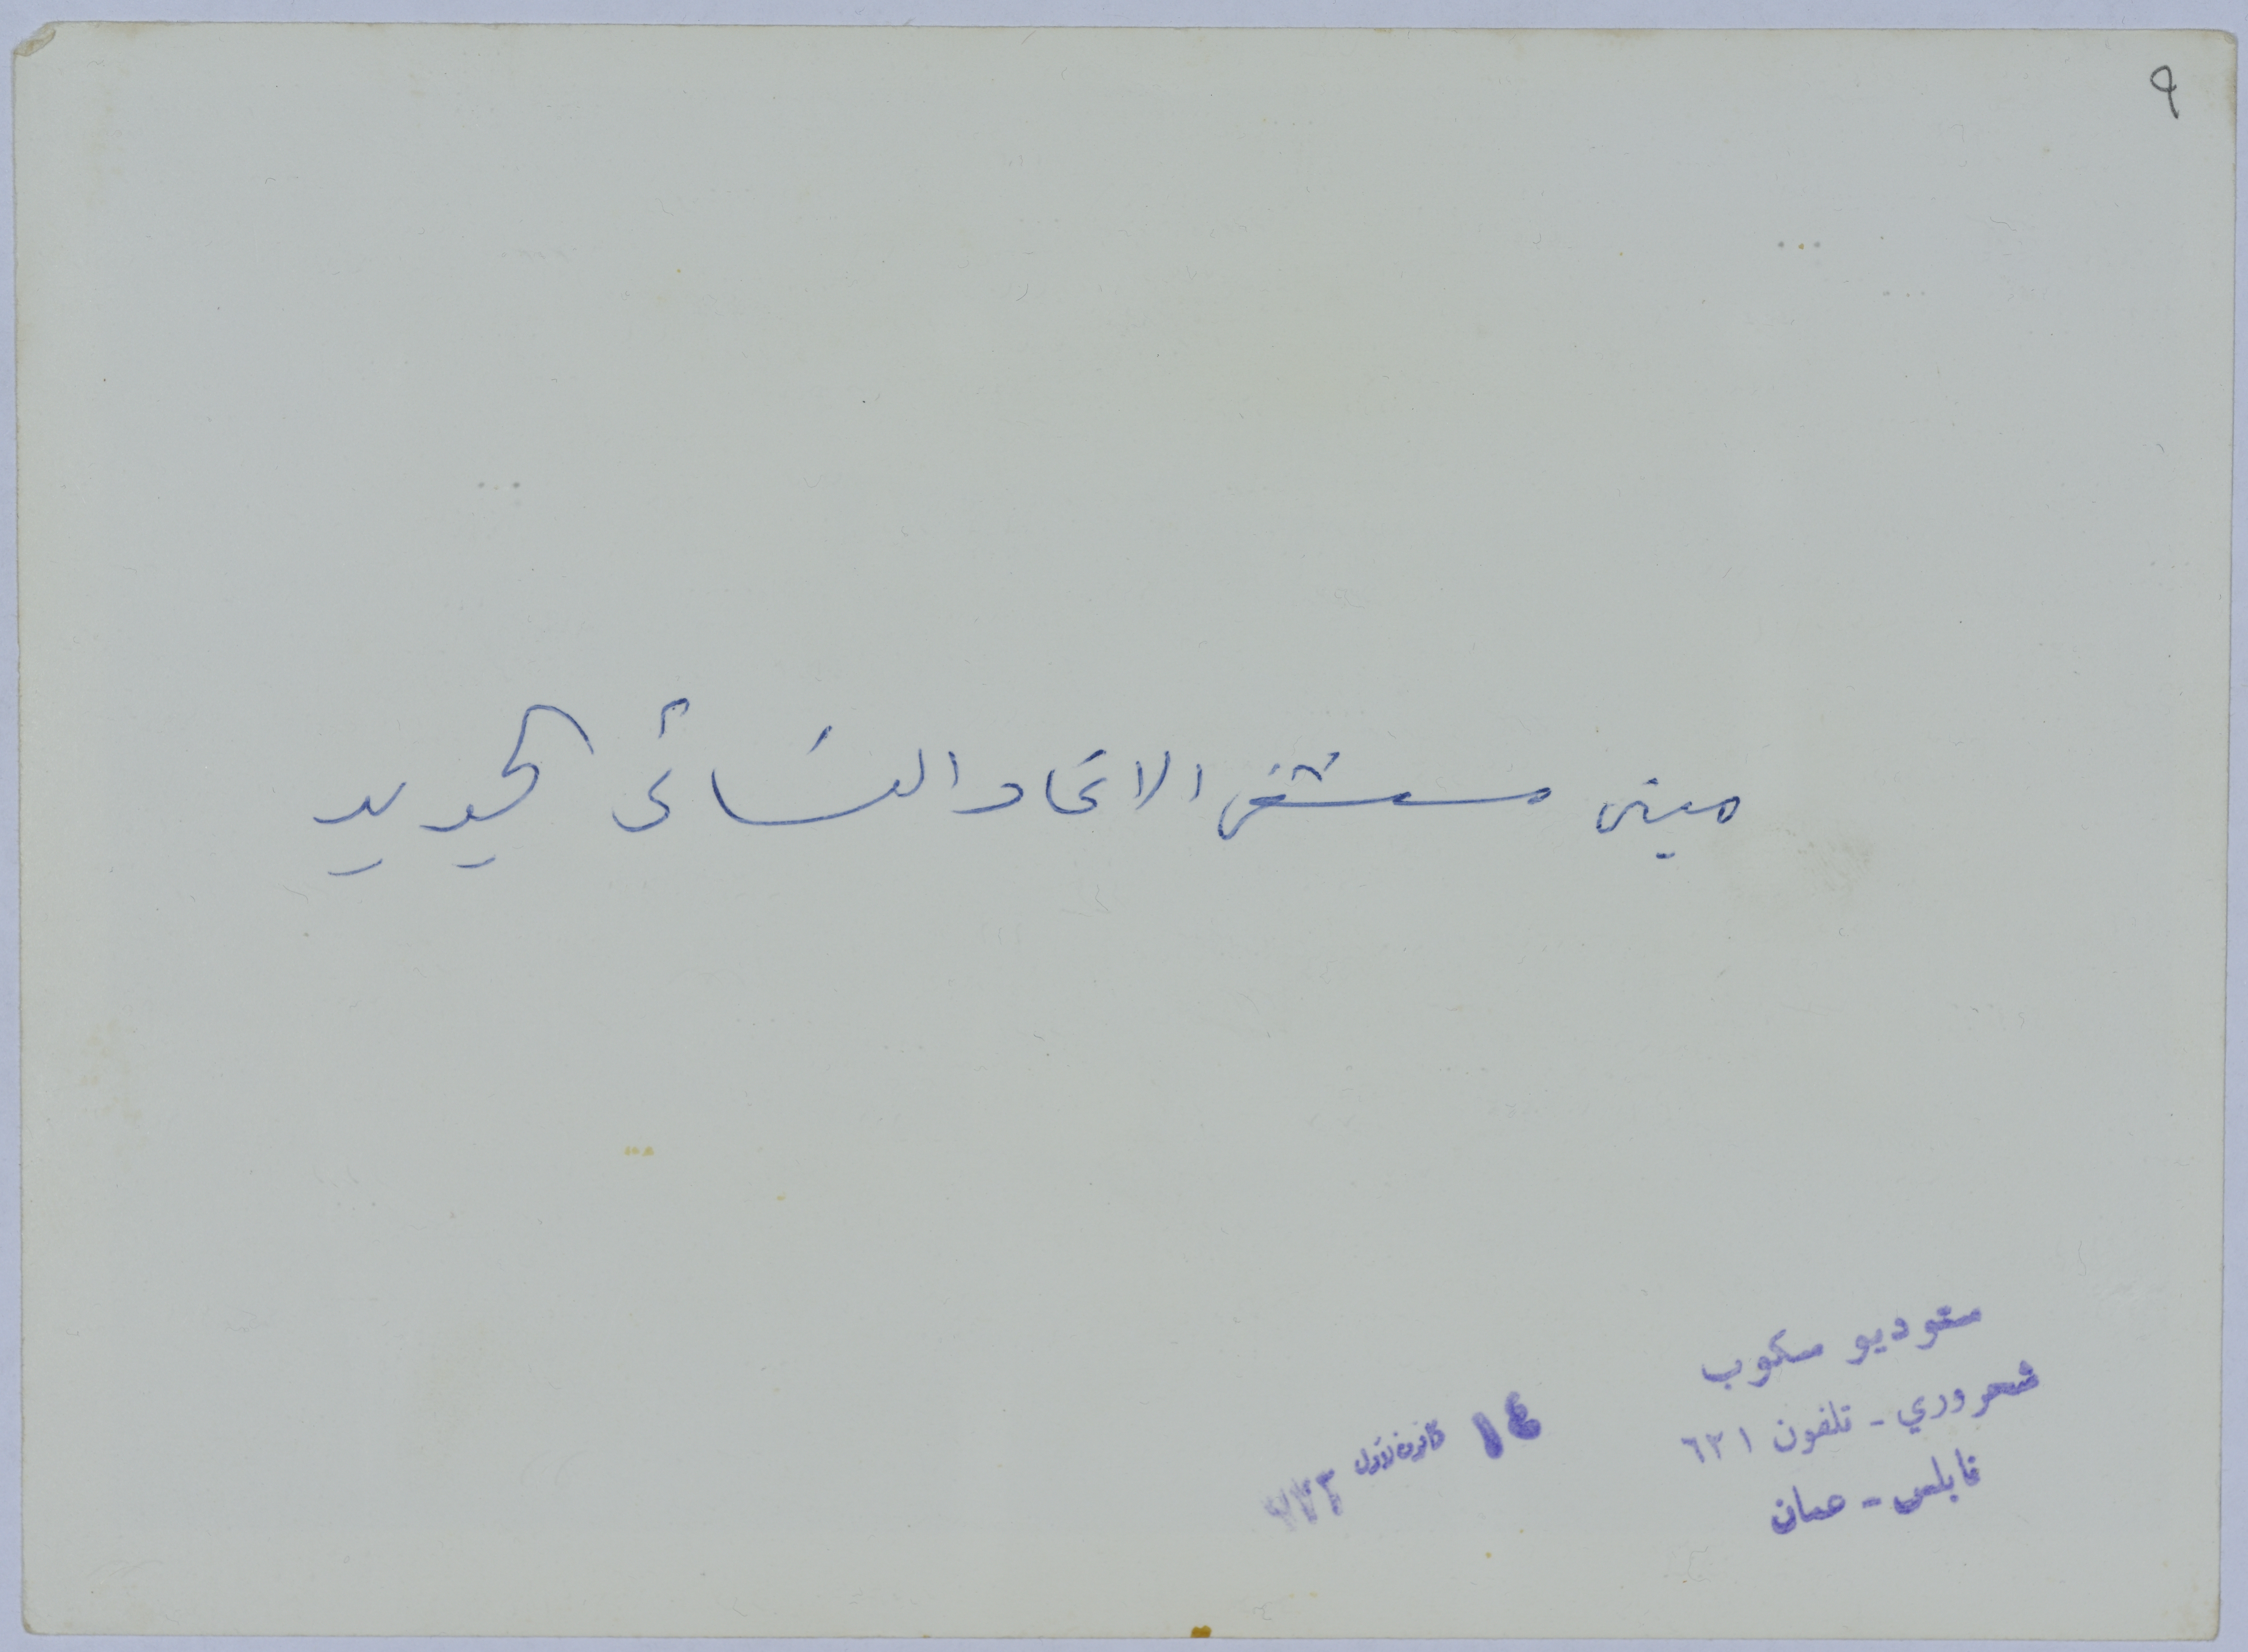 ٩
مبنى مستشفى الاتحاد النسائي الجديد
ستوديو سكوب
شحروري - تلفون ٦٢١
نابلس - عمان
١٤ كانون الاول